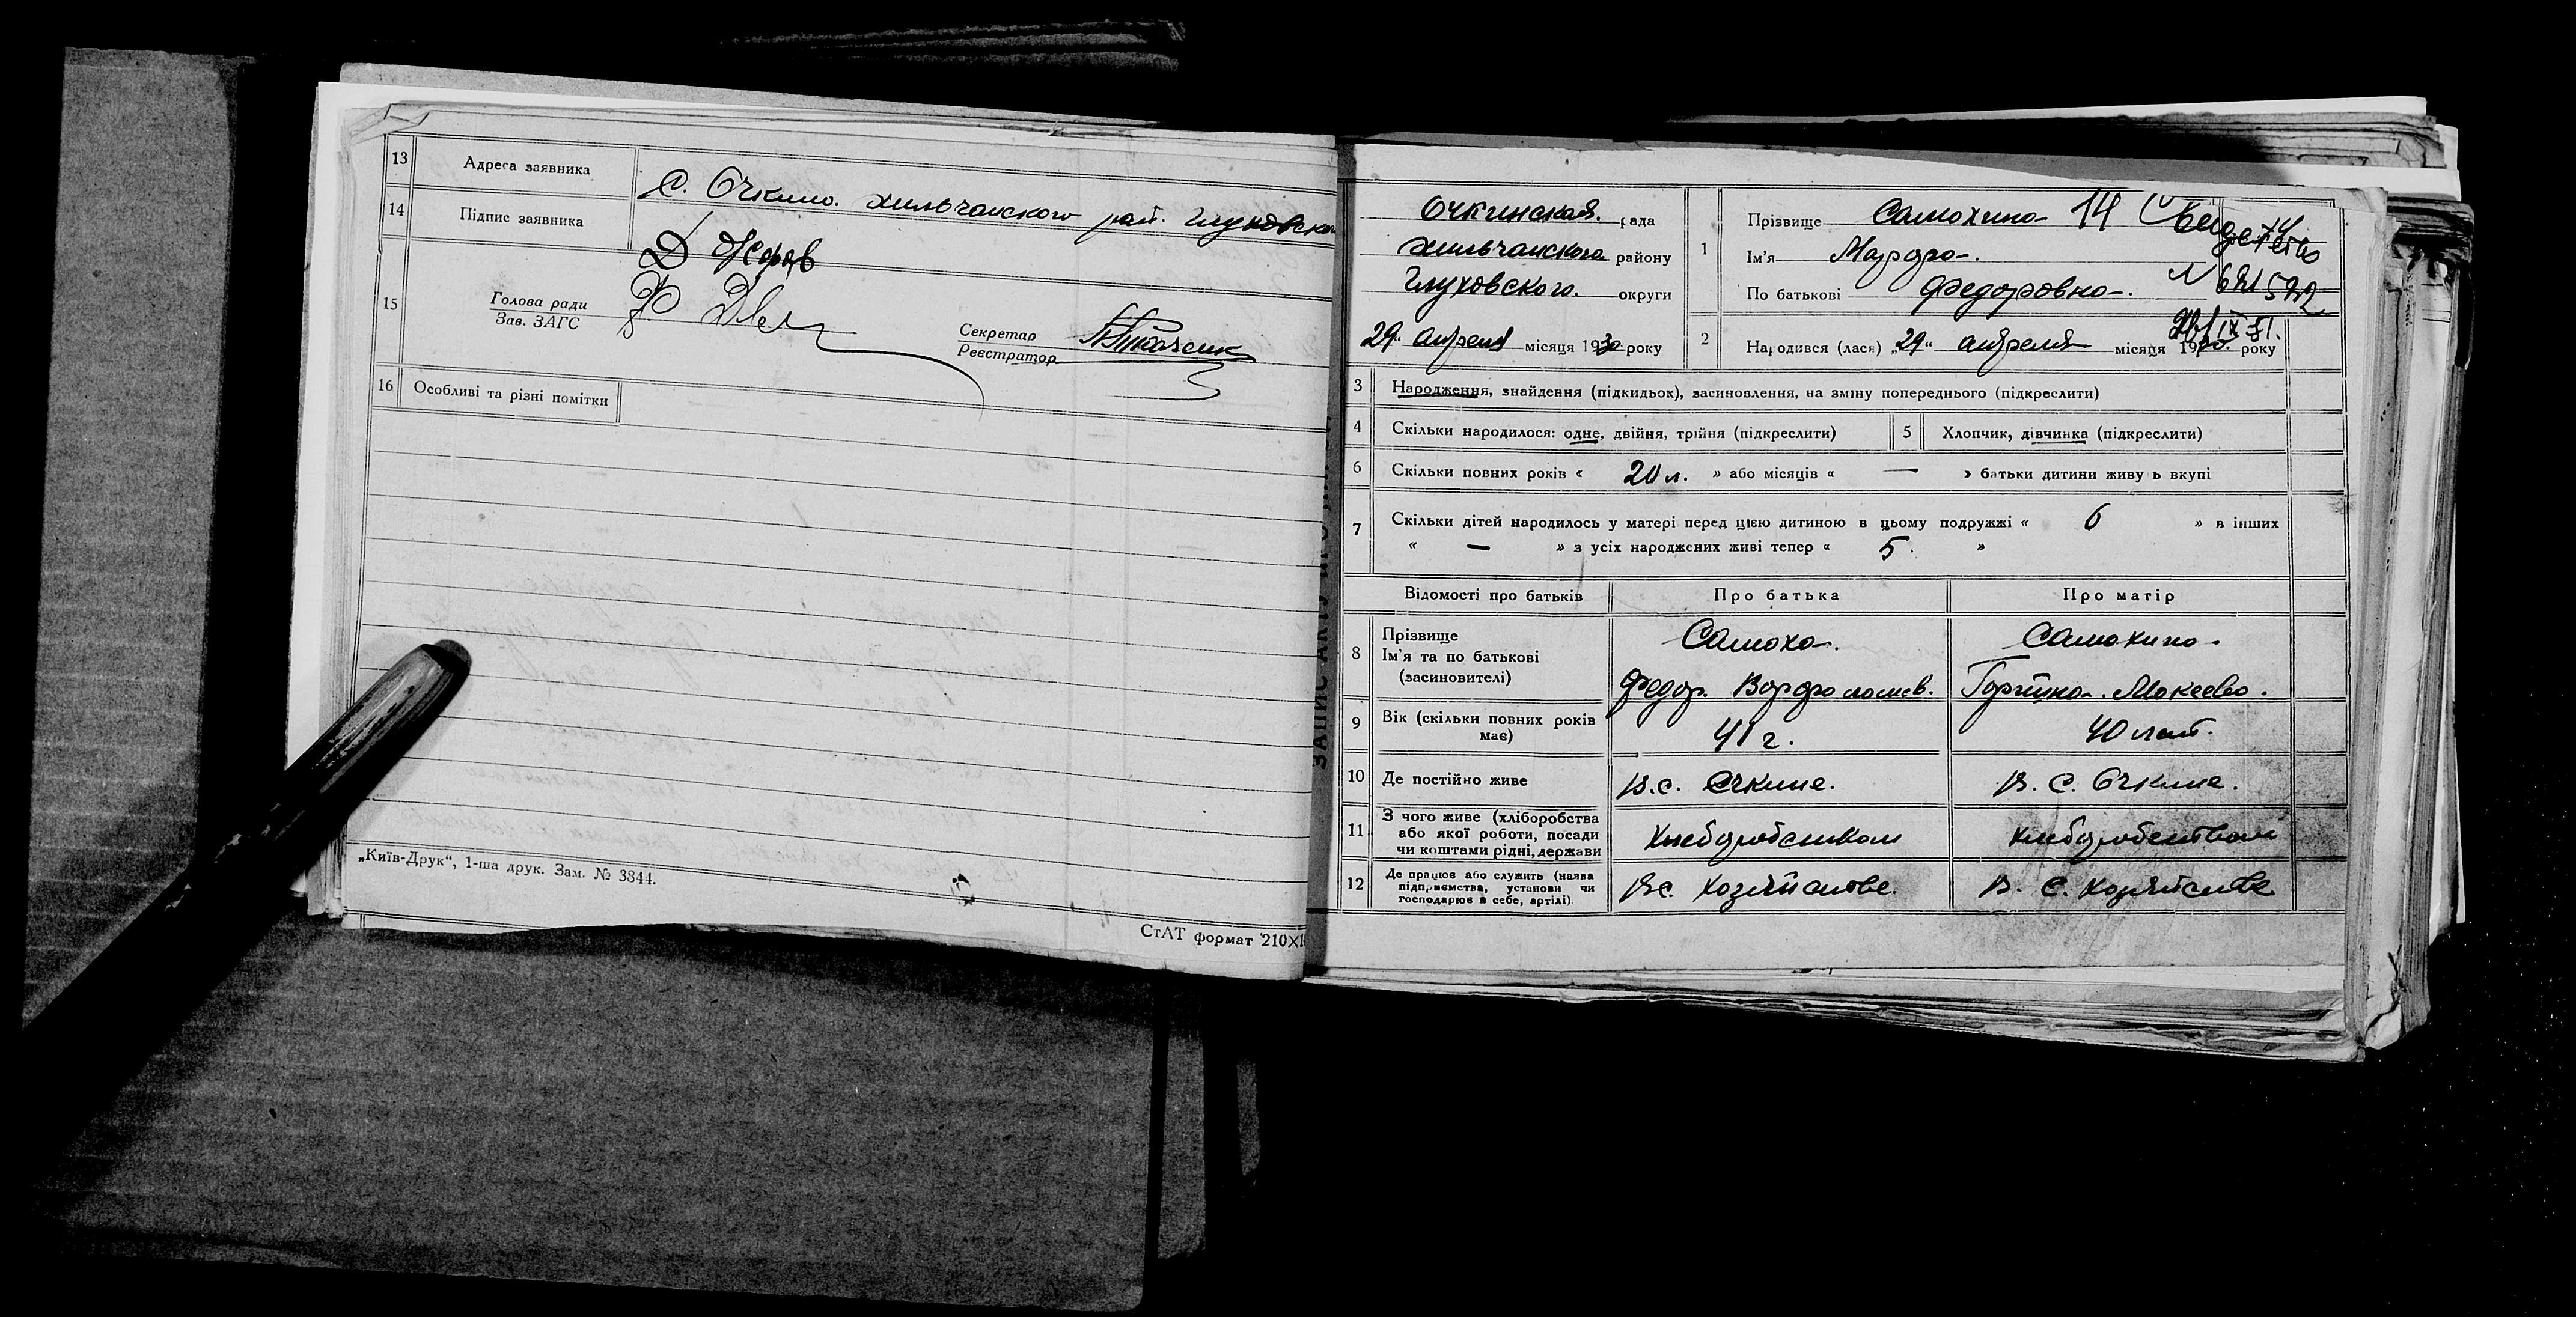 13 Адреса заявника
С. Очкино. Хильчанского рай. Глуховско
14 Підпис заявника
15 Голова ради
Зав. ЗАГС
Секретар
Реєстратор
16 Особливі та різні помітки
„Київ-Друк“, 1-ша друк. Зам. № 3844.
СтАТ формат 210×1
ЗАПИС АКТУ
Очкинская. рада
Хильчанского району
Глуховского. округи
29 " апреля місяця 1930 року
1 Прізвище Самохина 14
Ім'я Марфа.
По батькові Федоровна.
Свидетво
N 621522
2 Народився (лася) „29“ апреля місяця 19 року
3 Народження, знайдення (підкидьох), засиновлення, на зміну попереднього (підкреслити)
4 Скільки народилося: одне, двійня, трійня (підкреслити) 5 Хлопчик, дівчинка (підкреслити)
6 Скільки повних років « 20 л. » або місяців « — » батьки дитини живу ь вкупі
7 Скільки дітей народилось у матері перед цією дитиною в цьому подружжі « 6 » в інших
« — » з усіх народжених живі тепер « 5. »
Відомості про батьків Про батька Про матір
8 Прізвище Самоха. Самохина.
Ім'я та по батькові
(засновителі) Федор. Варфоломев. Горпина. Мокеева.
9 Вік (скільки повних років має) 41 г. 40 лет.
10 Де постійно живе В.с. Очкине. В. С. Очкине.
11 З чого живе (хліборобства
або якої роботи, посади
чи коштами рідні, держави Хлеборобством хлеборобством
12 Де працює або служить (назва
підприємства, установи чи
господарює в себе, артілі) В с. хозяйстве. В. С. хозяйстве